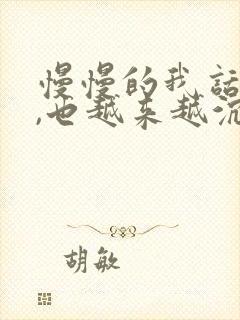 慢慢的我话
,也越来越沉
胡敏